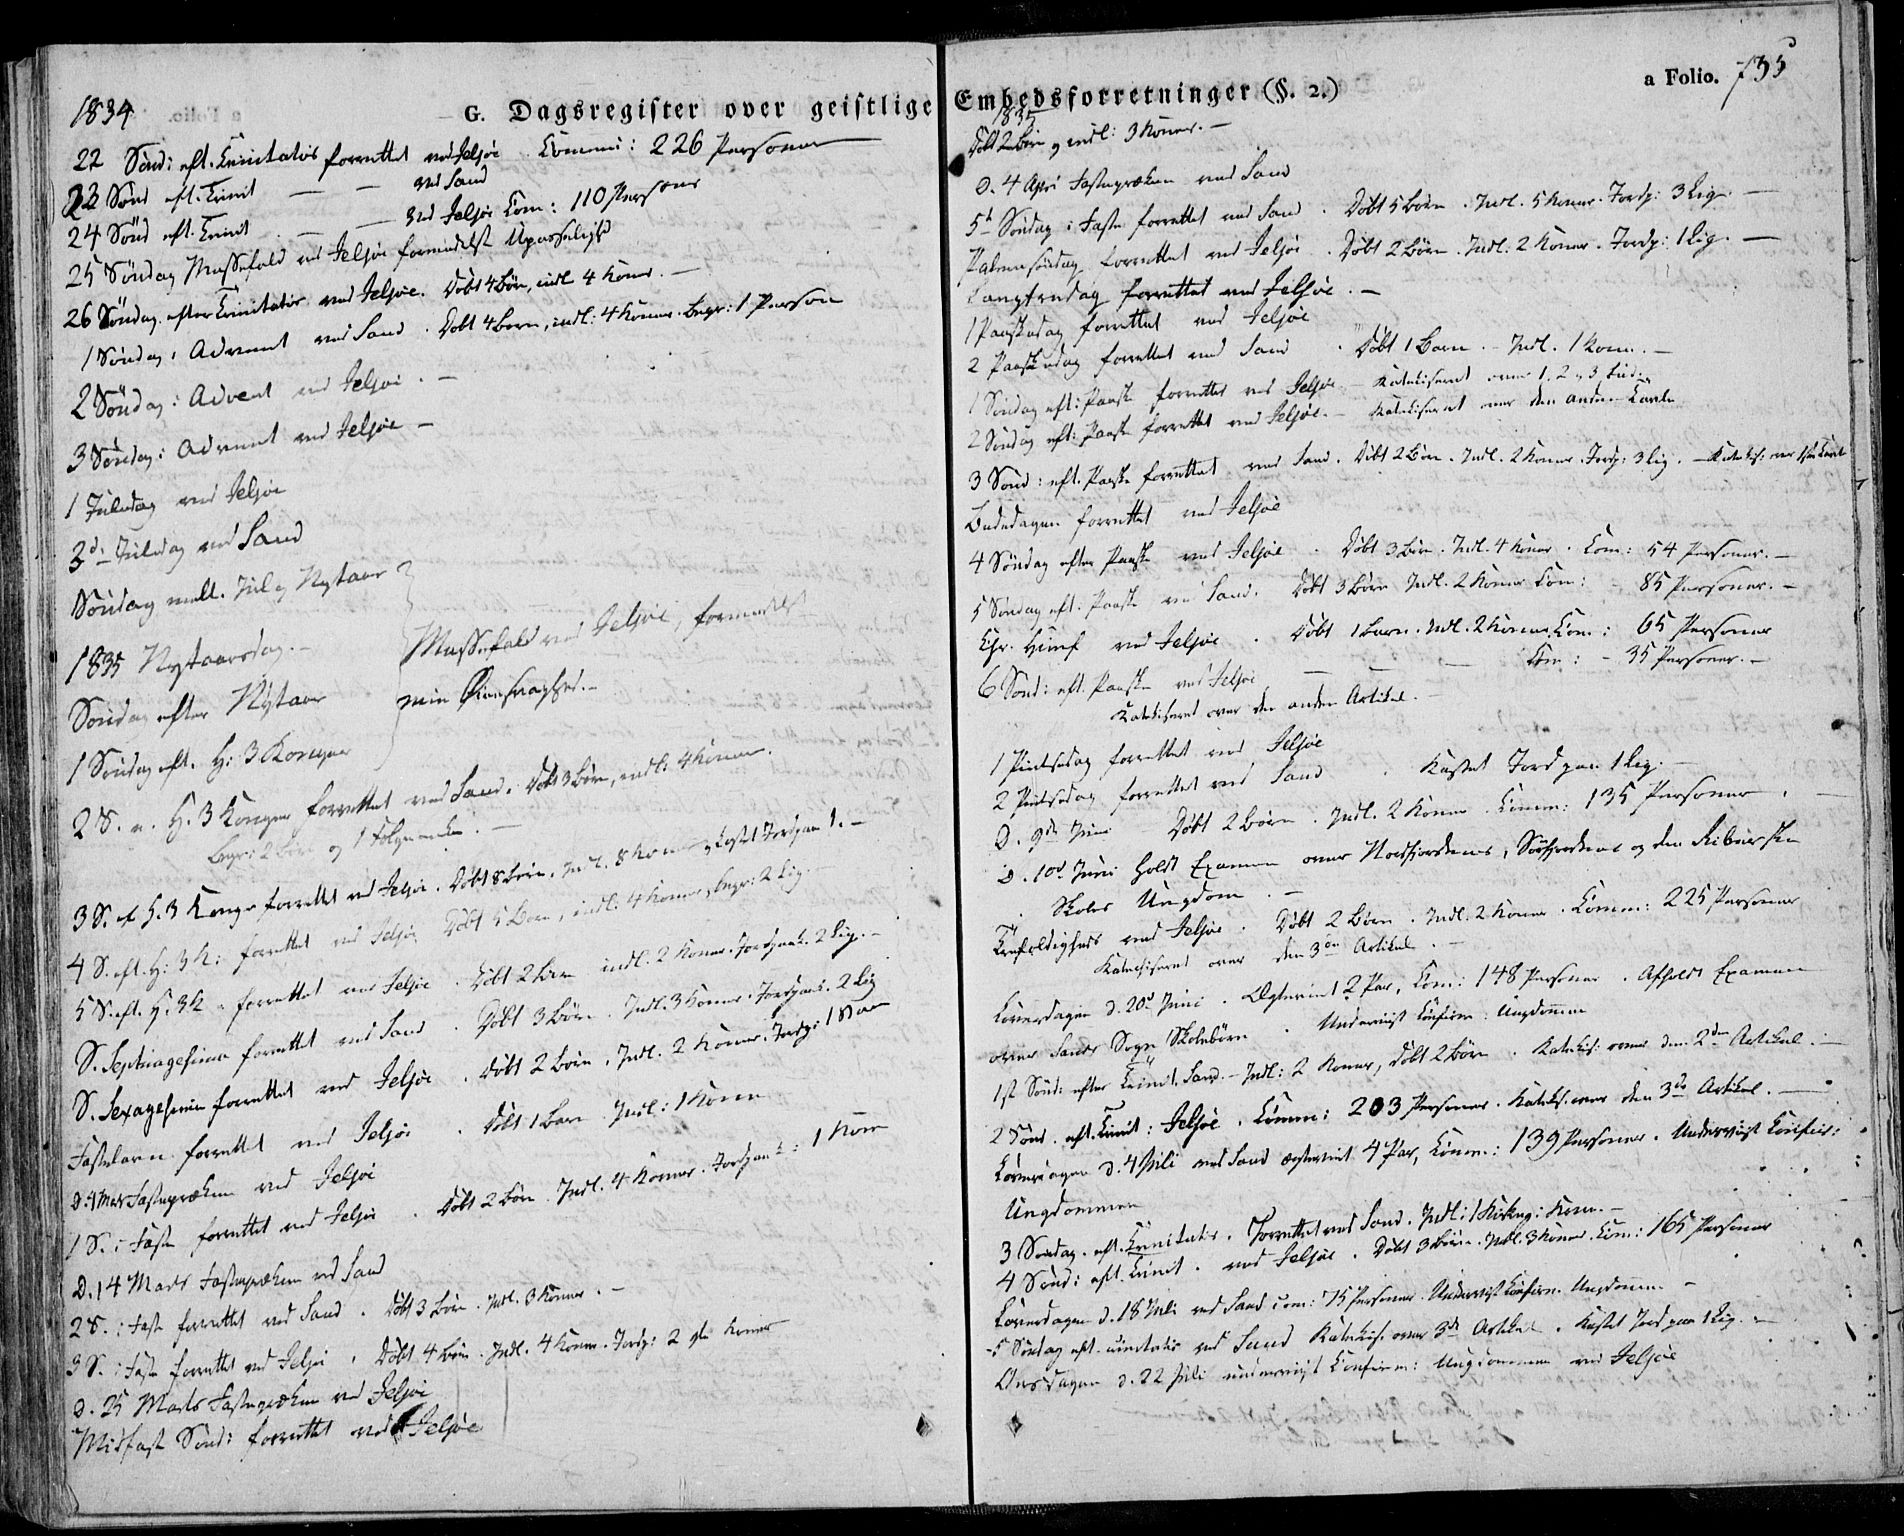 1834
G. Dagsregister over geistlige
22 Sönd: eft. Trinitatis forrettet ved Jelsöe. Commu: 226 Personer
23 Sönd eft. Trinit — — ved Sand
24 Sönd eft. Trinit. — — ved Jelsöe Com: 110 Persons
25 Söndag Messefald ved Jelsöe formedelst Upasselighed
26 Söndag efter Trinitatis ved Jelsöe. Döbt 4 Börn, indl 4 Koner. —
1 Söndag i Advent ved Sand. Döbt 4 Börn, indl: 4 Koner. Begr: 1 Person
2 Söndag i Advent ved Jelsöe. —
3 Söndag i Advent ved Jelsöe —
1 Juledag ved Jelsöe
2d— Juledag ved Sand
Söndag mell. Jul og Nytaar
1835 Nytaarsdag. —
Söndag efter Nytaar
1 Söndag eft. H: 3 Konger
Messefald ved Jelsöe, formedelst
min Øiensvaghed. —
2 S. e. H. 3 Konger forrettet ved Sand. Döbt 3 Börn, indl: 4 Koner.
Begr: 2 Börn og 1
3 S. ef H. 3 Konger forrettet ved Jelsöe. Döbt 8 Börn. Indl. 8 Koner, kastet Jord paa 1. —
4 S. eft. H: 3 K: forrettet ved Jelsöe Döbt 5 Börn, indl: 4 Koner, begr: 2 Lig.
5 S. eft. H. 3 K — forrettet ved Jelsöe. Döbt 2 Börn indl. 2 Koner. Jordpaak. 2 Lig. —
S. Septuagesima forrettet ved Sand. Döbt 3 Börn. Indl. 3 Koner. Jordpaak. 2 Lig
S. Sexagesima forrettet ved Jelsöe. Döbt 2 Börn. Indl. 2 Koner. Jordp: 1
Fastelavn forrettet ved Jelsöe. Döbt 1 Barn Indl: 1 Kone
D: 4 Mars Fasteprækn ved Jelsöe
1 S. i Faste forrettet ved Jelsöe. Döbt 2 Börn. Indl. 4 Koner. Jordpaak: 1 Kone
D. 14 Mars Fasteprækn ved Sand
2 S. i Faste forrettet ved Sand. Döbt 3 Börn. Indl. 3 Koner. —
3 S. i Faste forrettet ved Jelsöe. Döbt 4 Börn. Indl. 4 Koner. Jordp: 2 Koner
D. 25 Marts Fasteprækn ved Jelsöe
Midfaste Sönd: forrettet ved Jelsöe
Embedsforretninger (§. 2.)
a Folio. 735
1835
Döbt 2 Börn og indl: 3 Koner. —
D. 4 Apri Fasteprækn ved Sand
5te Söndag i Faste forrettet ved Sand. Döbt 5 Börn. Indl. 5 Koner. Jordp: 3 Lig. —
Palmesöndag forrettet ved Jelsöe. Döbt 2 Börn. Indl. 2 Koner. Jordp: 1 Lig. —
Langfredag forrettet ved Jelsöe. —
1 Paaskedag forrettet ved Jelsöe
2 Paaskedag forrettet ved Sand. Döbt 1 Barn. — Indl. 1 Kone. —
1 Söndag eft: Paaske forrettet ved Jelsöe — Katekiseret over 1, 2 og 3 Bud.
2 Söndag eft: Paaske forrettet ved Jelsöe. — Katekiseret over den anden Tavle
3 Sönd: eft. Paaske forrettet ved Sand. Döbt 2 Börn. Indl. 2 Koner. Jordp: 3 Lig. — Katekis: over
Bededagen forrettet ved Jelsöe
4 Söndag efter Paaske ved Jelsöe. Döbt 3 Börn. Indl. 4 Koner. Com: 54 Personer. —
5 Söndag eft. Paaske ved Sand. Döbt 3 Börn Indl. 2 Koner Com: — 85 Personer. —
Chr. Himf ved Jelsöe. Döbt 1 Barn. Indl. 2 Koner. Com: 65 Personer
6 Sönd: eft. Paaske ved Jelsöe — — — Com: — 35 Personer. —
Katekiseret over den anden Artikel. —
1 Pintsedag forrettet ved Jelsöe
2 Pintsedag forrettet ved Sand. Kastet Jord paa 1 Lig. —
D. 9de Juni Döbt 2 Börn. Indl. 2 Koner. Comm: 135 Personer. —
D. 10de Juni holdt Examen over Nordfjordens, Södfjordens og den
Skoles Ungdom. —
Trefoldigheds ved Jelsöe. Döbt 2 Börn. Indl. 2 Koner. Comm: 225 Personer
Katechiseret over den 3die Artikel. —
Löverdagen d. 20d Juni. Ægteviet 2 Par, Com: 148 Personer. Afholdt Examen
over Sands Sogns Skolebörn. Underviist Confirm: Ungdommen
1st Sönd: efter Trinit. Sand. — Indl: 2 Koner, Döbt 2 Börn. Katekis: over den 2den Artikel. —
2 Sönd. eft. Trinit: Jelsöe. Comm: 203 Personer. Katekis. over den 3die Artikel. —
Löverdagen d. 4 Juli ved Sand ægteviet 4 Par, Comm: 139 Personer. Underviist Confir:
Ungdommen
3 Söndag. eft. Trinitatis. Forrettet ved Sand. Indl: 1 Kirkeg: Kone. —
4 Sönd: eft. Trinit. ved Jelsöe. Döbt 3 Börn. Indl. 3 Koner. Com: 165 Personer
Löverdagen d. 18 Juli ved Sand Com: 75 Personer. Underviist Confirm. Ungdomm. —
5 Söndag eft. Trinitatis ved Sand Katekis. over 3de Artikel. Kastet Jord paa 1 Lig. —
Onsdagen d. 22 Juli underviist Confirm: Ungdommen ved Jelsöe